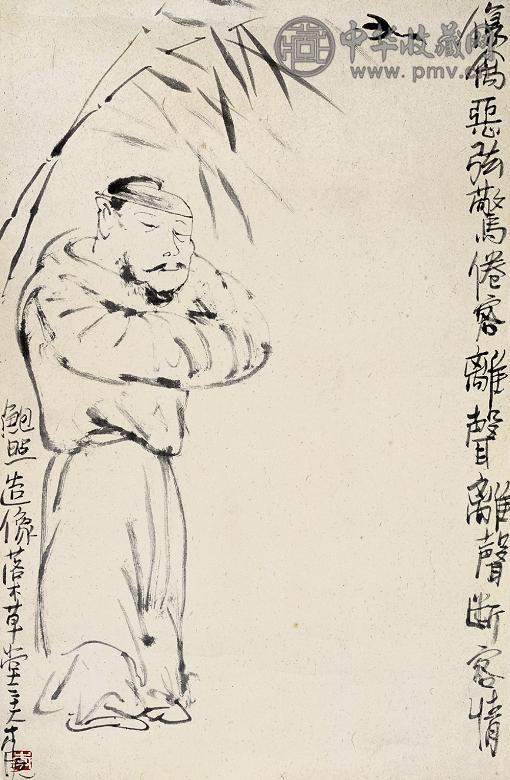 中华收藏网
www.pmv.cn
傷禽惡弦驚倦客離聲離聲斷客情
鮑照造像落木草堂主